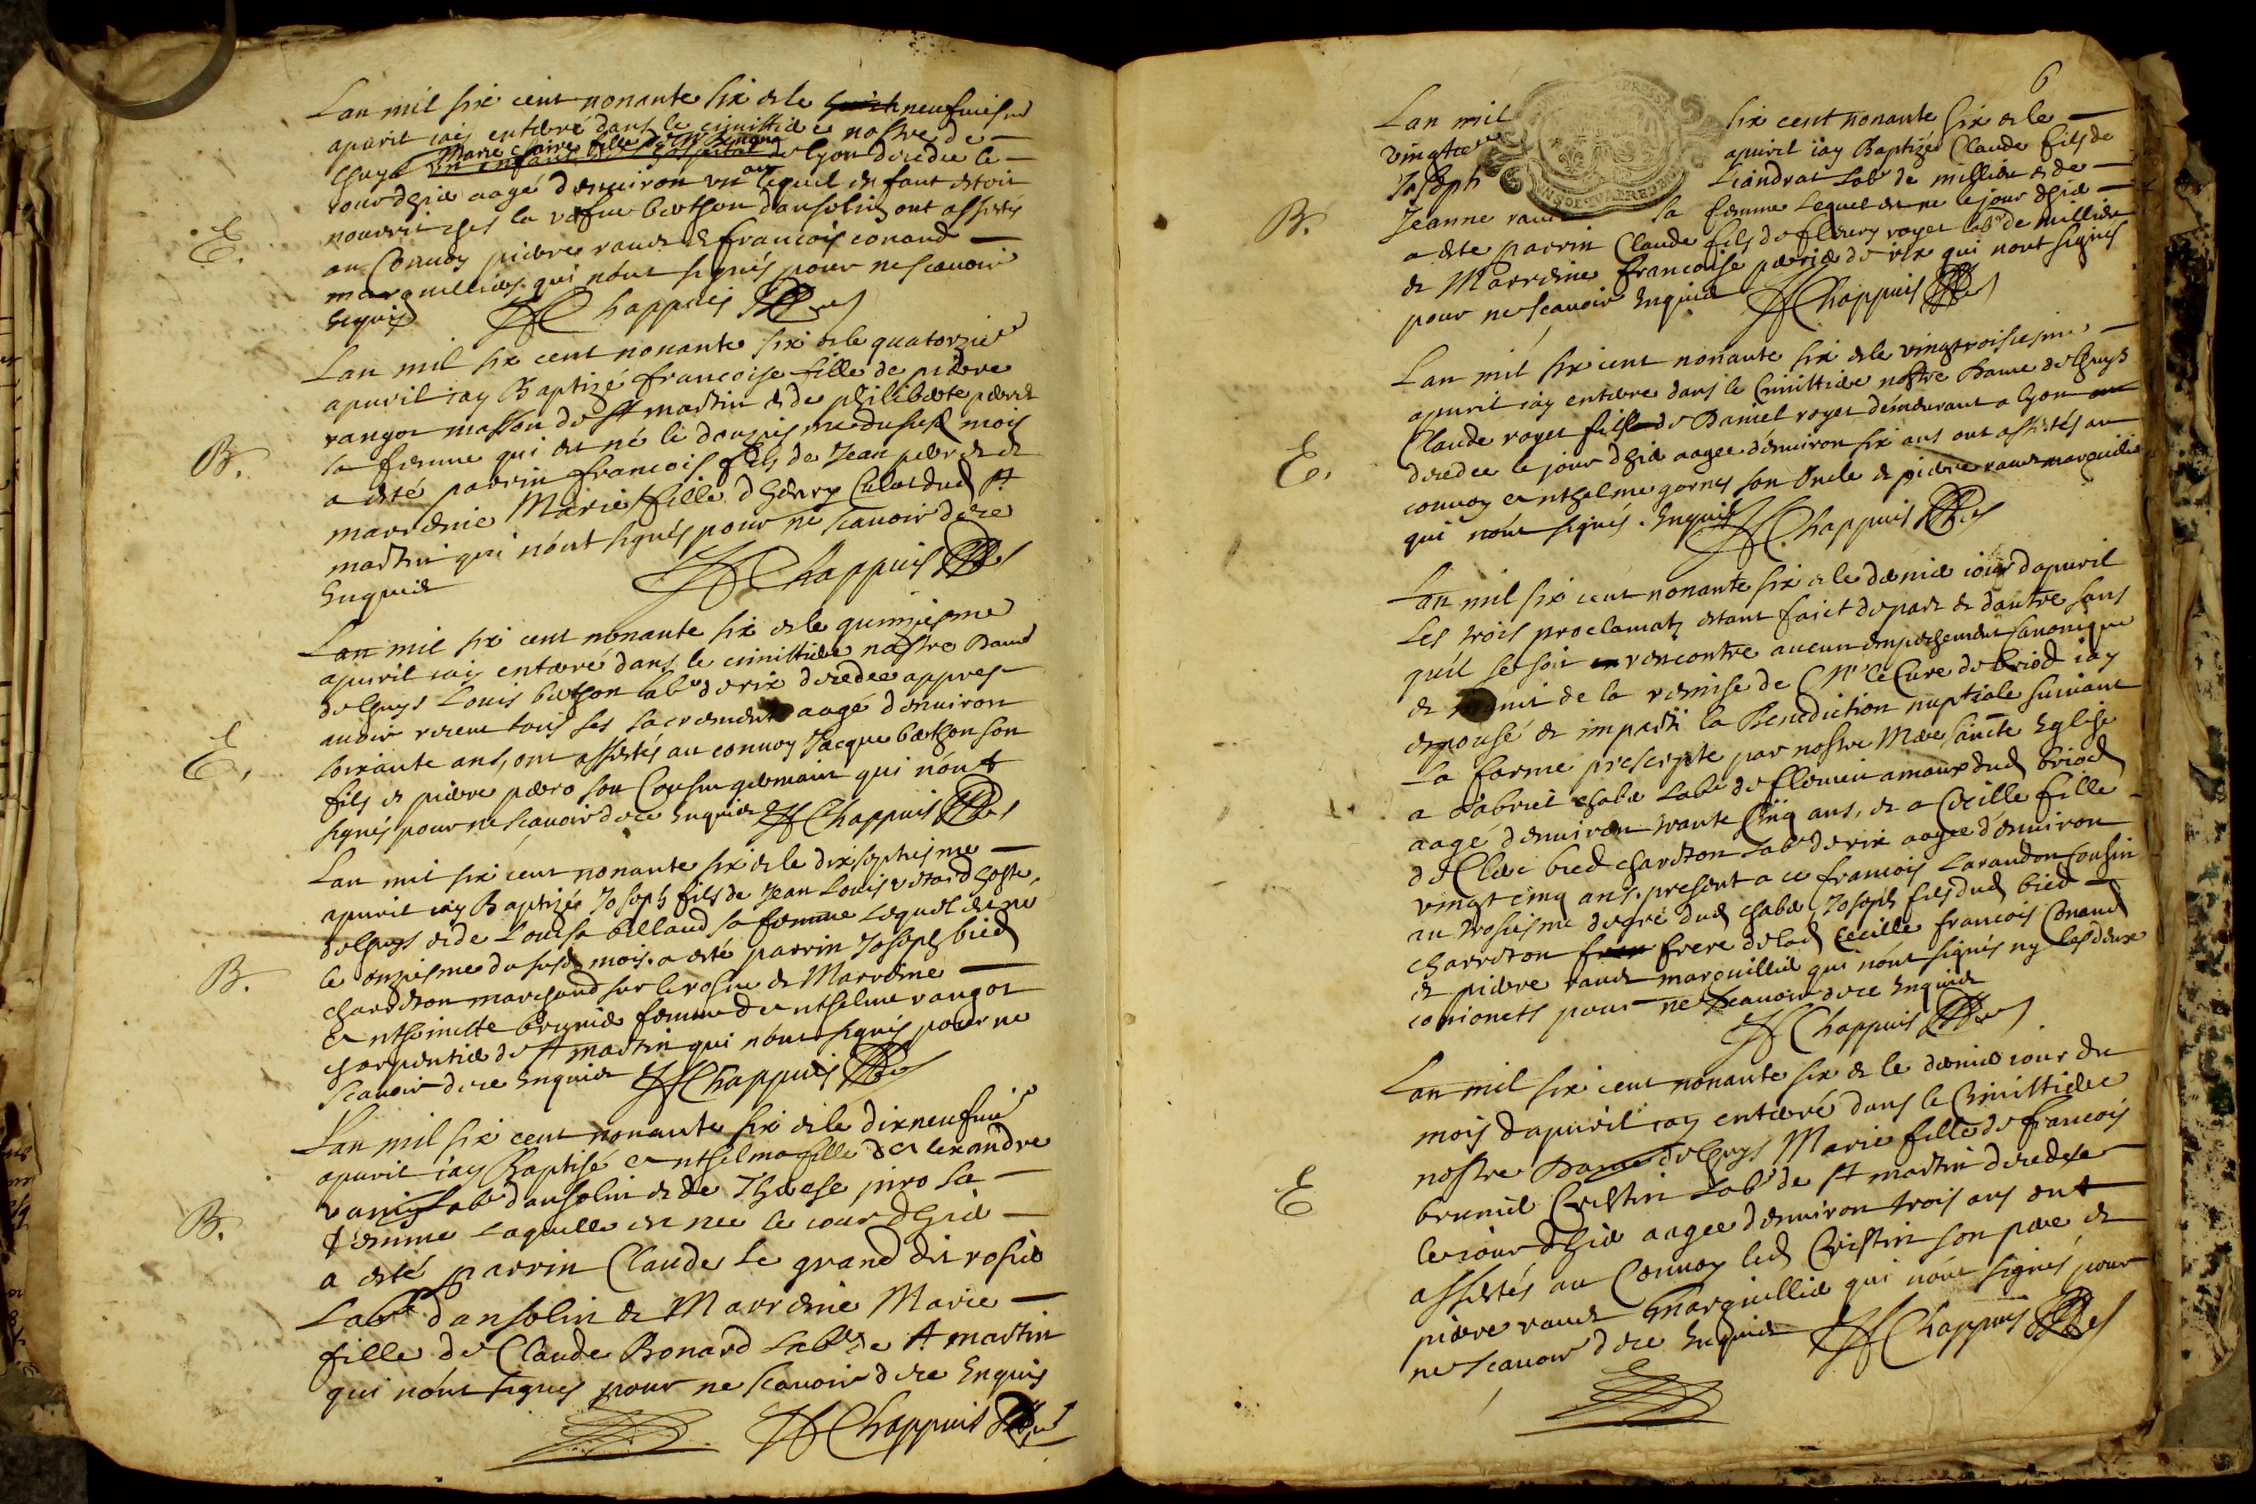 Lan mil six cent nonante six & le neufuiesme
apuril iay enterré dans le cimittiere nostre de
Guys Marie claire fille de
un enfant de lhospital de lyon decedee le
iourdhier aagé denuiron un an lequel enfant estoit
nourrit ches la vefue berthon dansolin ont assistés
E.
au Conuoy pierre raud & francois conand
marguilliers qui nont signés pour ne scauoir
Enquis Chappuis
Lan mil six cent nonante six & le quatorzie
apuril iay Baptizé francoise fille de pierre
rangot masson de st martin & de philiberte
B.
sa femme qui est né le douziesme dususd mois
a esté parrin francois fils de Jean
marrenie Marie fille dhenry dud st
martin qui nont signés pour ne scauoir decre
Enquis Chappuis
Lan mil six cent nonante six & le quinziesme
apuril iay enterré dans le cimittiere nostre Dame
deGuys Louis berthon labr de rix decedee appres
auoir receut tous ses sacrements aagé denuiron
E.
soixante ans, ont assistés au conuoy Jacque berthon son
fils & pierre pero son Cousin germain qui nont
signés pour ne scauoir decre Enquis Chappuis
Lan mil six cent nonante six & le dixseptiesme
apuril iay Baptizé Joseph fils de Jean Louis hoste
deGuys & de Louise billaud sa femme Lequel est ne
B.
le onziesme du susd mois. a esté parrin Joseph bied
charreton marchand sur le rosne & Marrenie
Anthoinette femme danthelme rangot
charpentier de st martin qui nont signés pour ne
scauoir decre Enquis Chappuis
Lan mil six cent nonante six & le dixneufuie
apuril iay Baptisé Anthelma fille dAlexandre
labr dansolin & de Therese piro sa
B.
femme Laquelle est nee le iour dhier
a esté parrin Claude Le grand dit rosie
Labr dansolin & Marrenie Marie
fille de Claude Bonard Labr de st martin
qui nont signes pour ne scauoir decre Enquis
Chappuis
6
Lan mil six cent nonante six & le
vingt apuril iay Baptizé Claude fils de
Joseph Liandrat Labr de millieu & de
B.
Jeanne sa femme Lequel est ne le jour dhier
a este parrin Claude fils de fleury royet labr de millieu
& Marrenie francoise de rix qui nont signés
pour ne scauoir Enquis Chappuis
Lan mil six cent nonante six & le vingtroisiesme
apuril iay enterre dans le Cimittiere nostre Dame deGuys
Claude royet fille de Daniel royet demeurant a lyon
E.
decedee le jour dhier aagee denuiron six ans ont assistés au
conuoy Anthelme gornes son Oncle & pierre raud marguillier
qui nont signés. Enquis Chappuis
Lan mil six cent nonante six & le dernier iour dapuril
Les trois proclamatz estant faict de part & dautre sans
quil se soit rencontre aucun empeschement Canonique
& de la remise de Mr le Cure de briod iay
espousé & imparti la Benediction nuptiale suiuant
La forme prescripte par nostre Mere saincte Eglise
a Gabriel chabe Labr de dud briod
aagé denuiron trante Cinq ans, & a Cecille fille
de Claude bied charreton Labr de rix aagee denuiron
vingt cinq ans. present a ce francois Larandon Cousin
au troisiesme degré dud chabe, Joseph fils dud bied
charreton frere de lad Cecille francois Conand
& pierre raud marguillier qui nont signés ny les deux
conionets pour ne scauoir decre Enquis
Chappuis
Lan mil six cent nonante six & le dernier iour du
mois dapuril iay enterré dans le Cimittiere
nostre Dame deGuys Marie fille de francois
E
bruniel Cristin Labr de st martin decedee
le iour dhier aagee denuiron trois ans ont
assistés au Conuoy led Cristin son pere &
pierre raud Marguillier qui nont signés pour
ne scauoir decre Enquis Chappuis